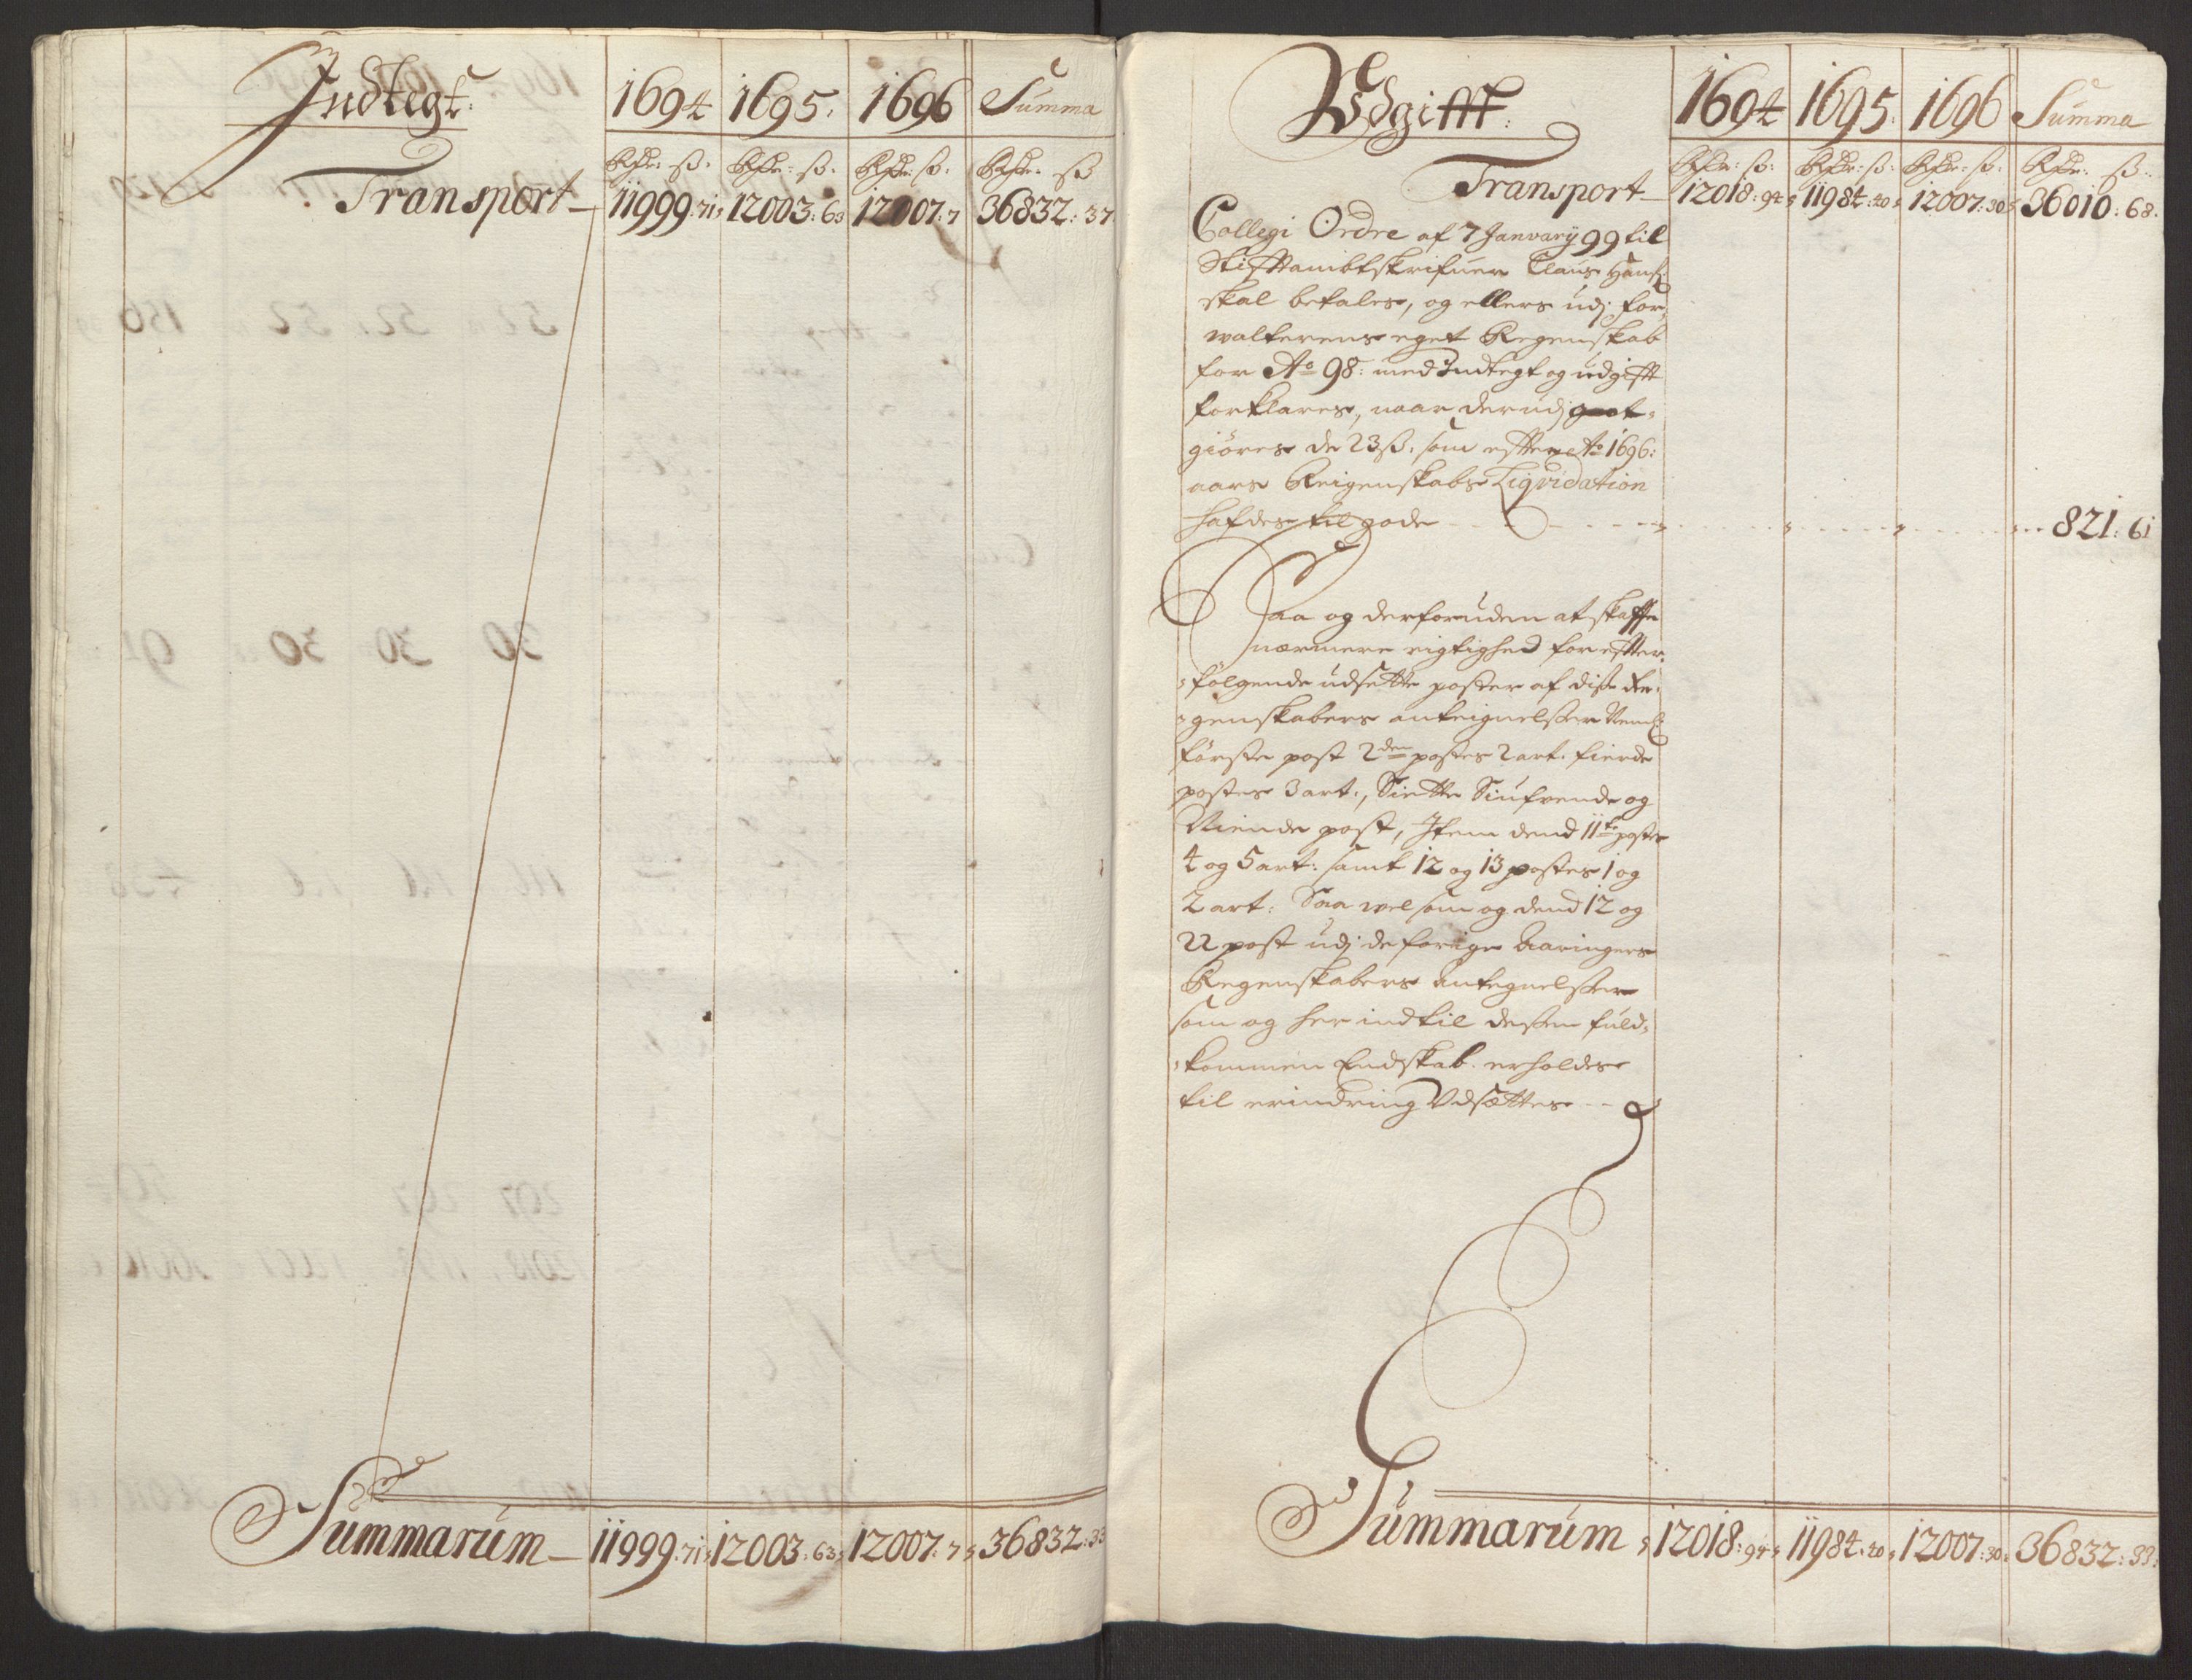 Indtegt:
1694
1695.
1696
Summa
Rixdr: ß.
Rixdr: ß.
Rixdr: ß.
Rixdr. ß
Transport
11999: 71
12003: 63
12007: 7
36832: 37
Summarum
11999: 71
12003: 63
12007: 7
36832: 33
Vdgifft:
1694
1695.
1696
Summa
Rixdr: ß:
Rixdr: ß:
Rixdr: ß.
Rixdr: ß.
Transport
12018: 94
11984: 20
12007: 30
36010: 68.
Collegi Ordre af 7 Janvarij 99 til
Stifftambtskrifuer Claus Hanß:
skal betales, og ellers udj for,
walterens eget Regenskab
for Ao 98: med Indtegt og udgifft
forklares, naar derudj got-
giöres de 23ß. som effter Ao 1696:
aars Reigenskabs Liqvidation
hafdes til gode
821: 61
Saa og derforuden at skaffe
nærmere rigtighed for effter,
fölgende udsette poster af diße Re-
genskabers anteignelßer Neml:
förste post 2den postes 2 art. fierde
postes 3 art:, Siette Siufvende og
Niende post, Item dend 11te postes
4 og 5 art: samt 12 og 13 postes 1 og
2 art: Saa vel som og dend 12 og
22 post udj de forige Aaringers
Regenskabers Antegnelßer
som og her indtil deßen fuld,
kommen Endskab erholdes
til erindring Vdsættes
Summarum
12018: 94
11984: 20
12007: 30
36832: 33: